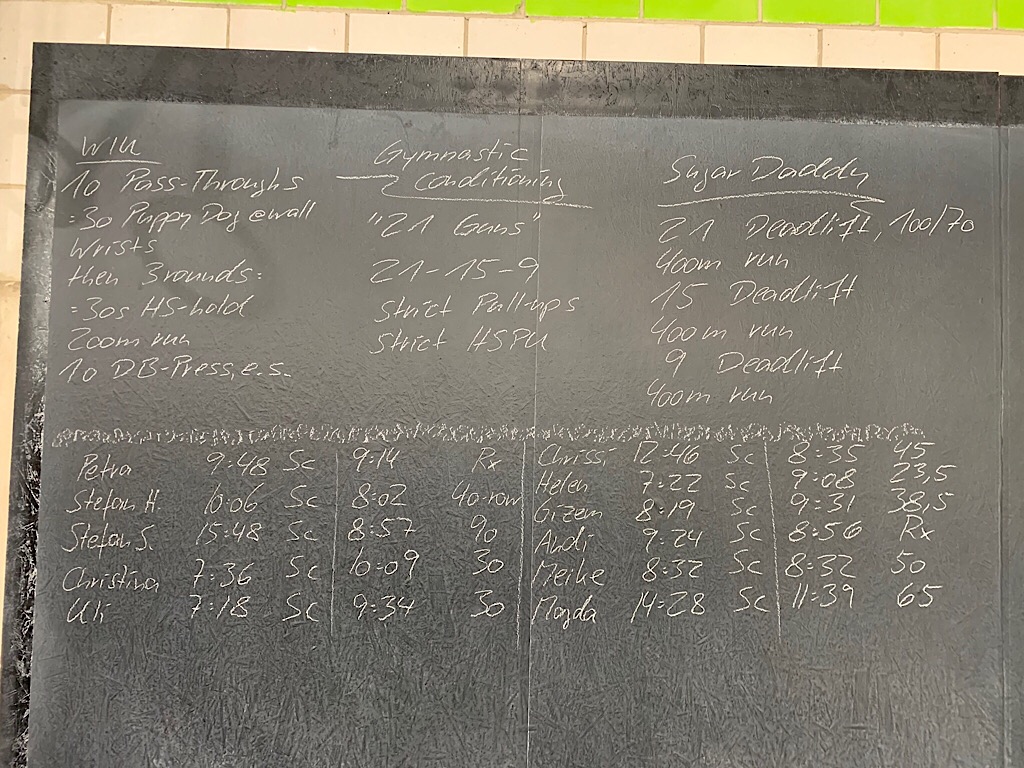 WIU
10 Pass-Throughs
:30 Puppy Dog @wall
Wrists
then 3 rounds:
:30s HS-hold
200m run
10 DB-Press, e.s.
Gymnastic
Conditioning
"21 Guns"
21-15-9
strict Pull-ups
strict HSPU
Sugar Daddy
21 Deadlift, 100/70
400m run
15 Deadlift
400m run
9 Deadlift
400m run
Petra 9:48 Sc 9:14 Rx
Stefan H. 10:06 Sc 8:02 40-row
Stefan S. 15:48 Sc 8:57 90
Christina 7:36 Sc 10:09 30
Uli 7:18 Sc 9:34 30
Chrissi 12:46 Sc 8:35 45
Helen 7:22 Sc 9:08 23,5
Gizem 8:19 Sc 9:31 38,5
Andi 9:24 Sc 8:56 Rx
Meike 8:32 Sc 8:32 50
Magda 14:28 Sc 11:39 65